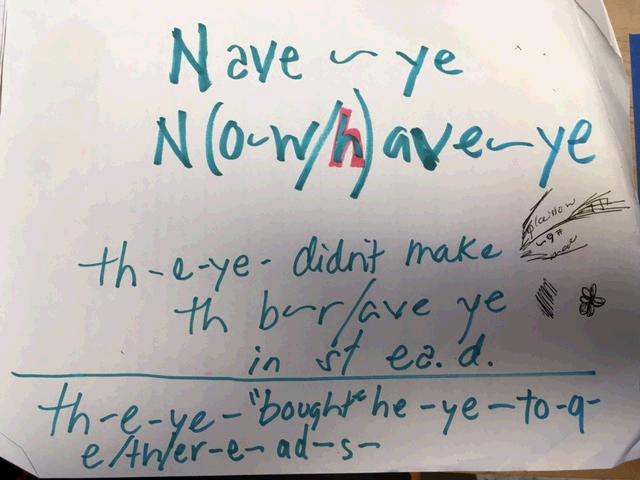 Nave ~ ye
N(o~w/h)ave~ye
th-e-ye- didn't make
th b~r/ave ye
in st ea.d.
th-e-ye-"bought" he-ye-to-g-
e/th/er-e-ad-s-